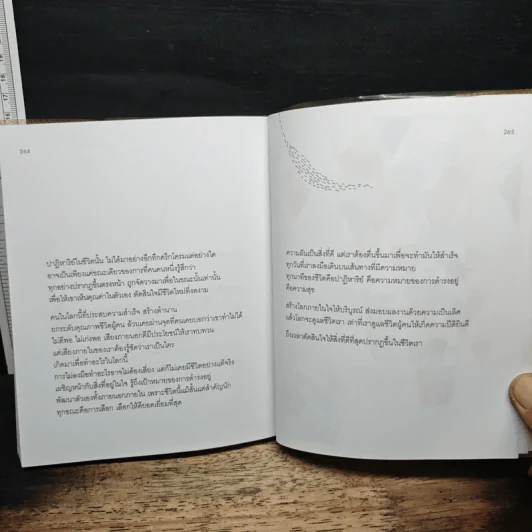 264
ปาฏิหาริย์ในชีวิตนั้น ไม่ได้มาอย่างอึกทึกครึกโครมแต่อย่างใด
อาจเป็นเพียงแค่ขณะเดียวของการที่คนคนหนึ่งรู้สึกว่า
ทุกอย่างปรากฏขึ้นตรงหน้า ถูกจัดวางมาเพื่อในขณะนั้นเท่านั้น
เพื่อให้เขาเห็นคุณค่าในตัวเอง ตัดสินใจมีชีวิตใหม่ที่งดงาม
คนในโลกนี้ที่ประสบความสำเร็จ สร้างตำนาน
ยกระดับคุณภาพชีวิตผู้คน ล้วนเคยผ่านจุดที่คนเคยบอกว่าเขาทำไม่ได้
ไม่ดีพอ ไม่เก่งพอ เสียงภายนอกก็มีประโยชน์ให้เราทบทวน
แต่เสียงภายในของเราต้องรู้ชัดว่าเราเป็นใคร
เกิดมาเพื่อทำอะไรในโลกนี้
การไม่ลงมือทำอะไรอาจไม่ต้องเสี่ยง แต่ก็ไม่เคยมีชีวิตอย่างแท้จริง
เผชิญหน้ากับสิ่งที่อยู่ในใจ รู้ถึงเป้าหมายของการดำรงอยู่
พัฒนาตัวเองทั้งภายนอกภายใน เพราะชีวิตนี้แม้สั้นแต่สำคัญนัก
ทุกขณะคือการเลือก เลือกให้ดียอดเยี่ยมที่สุด
265
ความฝันเป็นสิ่งที่ดี แต่เราต้องตื่นขึ้นมาเพื่อจะทำมันให้สำเร็จ
ทุกวันที่เราลงมือเดินบนเส้นทางที่มีความหมาย
ทุกนาทีของชีวิตคือปาฏิหาริย์ คือความหมายของการดำรงอยู่
คือความสุข
สร้างโลกภายในใจให้บริบูรณ์ ส่งมอบผลงานด้วยความเป็นเลิศ
แล้วโลกจะดูแลชีวิตเรา เท่าที่เราดูแลชีวิตผู้คนให้เกิดความปีติยินดี
ถึงเวลาตัดสินใจให้สิ่งที่ดีที่สุดปรากฏขึ้นในชีวิตเรา